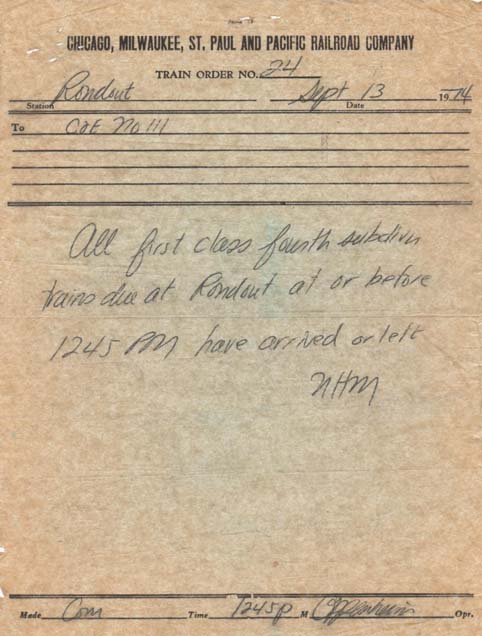 CHICAGO, MILWAUKEE, ST. PAUL AND PACIFIC RAILROAD COMPANY
TRAIN ORDER NO. 24
Rondout Sept 13 1974
Station Date
To C&E No 111
All first class fourth subdivn
trains due at Rondout at or before
1245 PM have arrived or left
NHM
Made Com Time 1245p M Oppenheim Opr.